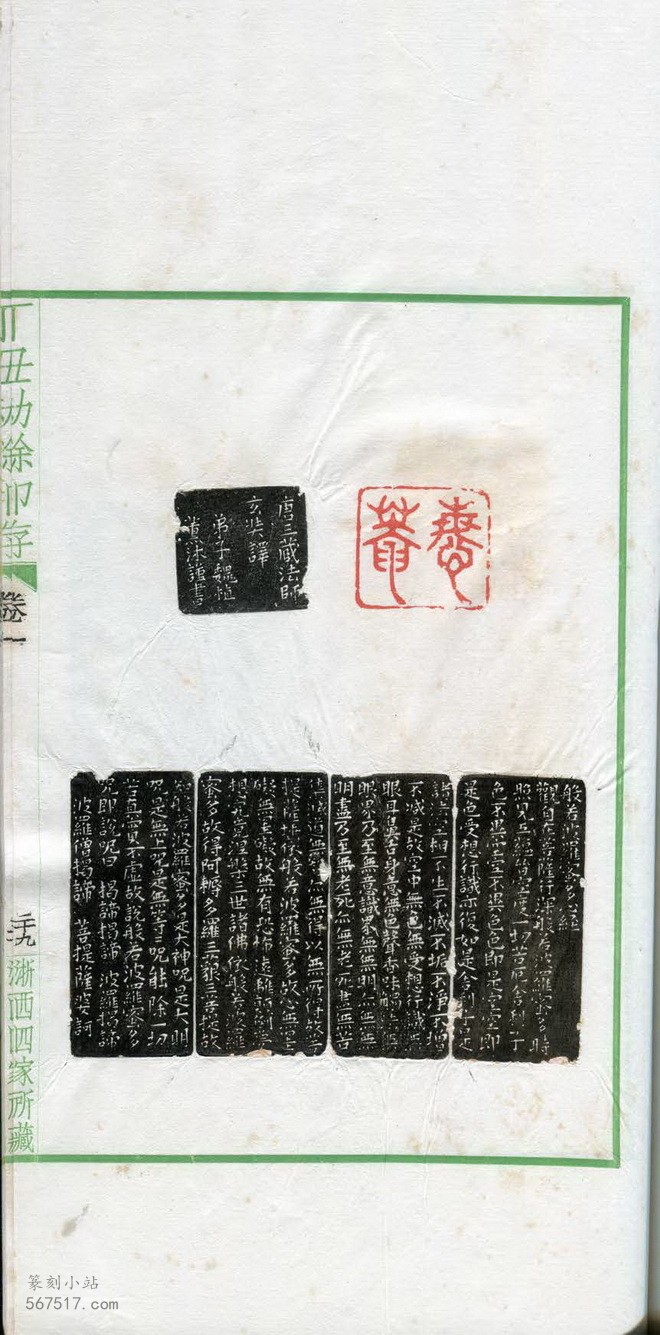 唐三藏法師
玄奘譯
弟子魏植
沐謹書
般若波羅蜜多心經
觀自在菩薩行深般若波羅蜜多時
照見五蘊皆空度一切苦厄舍利子
色不異空空不異色色即是空空即
是色受想行識亦復如是舍利子是
諸法空相不生不滅不垢不淨不增
不減是故空中無色無受想行識無
眼耳鼻舌身意無色聲香味觸法無
眼界乃至無意識界無無明亦無無
明盡乃至無老死亦無老死盡無苦
集滅道無智亦無得以無所得故菩
提薩埵依般若波羅蜜多故心無罣
礙無罣礙故無有恐怖遠離顛倒夢
想究竟涅槃三世諸佛依般若波羅
蜜多故得阿耨多羅三藐三菩提故
知般若波羅蜜多是大神呪是大明
呪是無上呪是無等等呪能除一切
苦真實不虛故說般若波羅蜜多
呪即說呪曰 揭諦揭諦 波羅揭諦
波羅僧揭諦 菩提薩婆訶
丁丑劫餘印存
卷一
二十九
浙西四家所藏
篆刻小站
567517.com